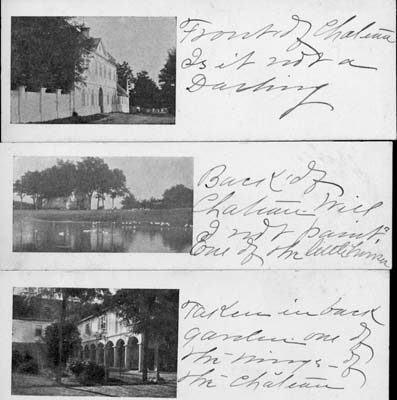 Front of Chateau
Is it not a
Darling
Back of
Chateau Will
I not paint
one of the
Taken in back
garden one of
the wings - of
the Château